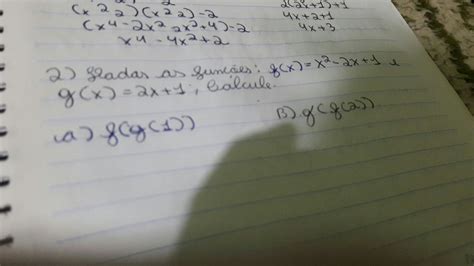 (x² 2)(x² 2) - 2
(x4 - 2x² - 2x² + 4) - 2
x4 - 4x² + 2
2(2x+1)+1
4x+2+1
4x+3
2) Dadas as funções: f(x) = x² - 2x + 1 e
g(x) = 2x + 1, Calcule.
A) f(g(1))
B) g(f(2))